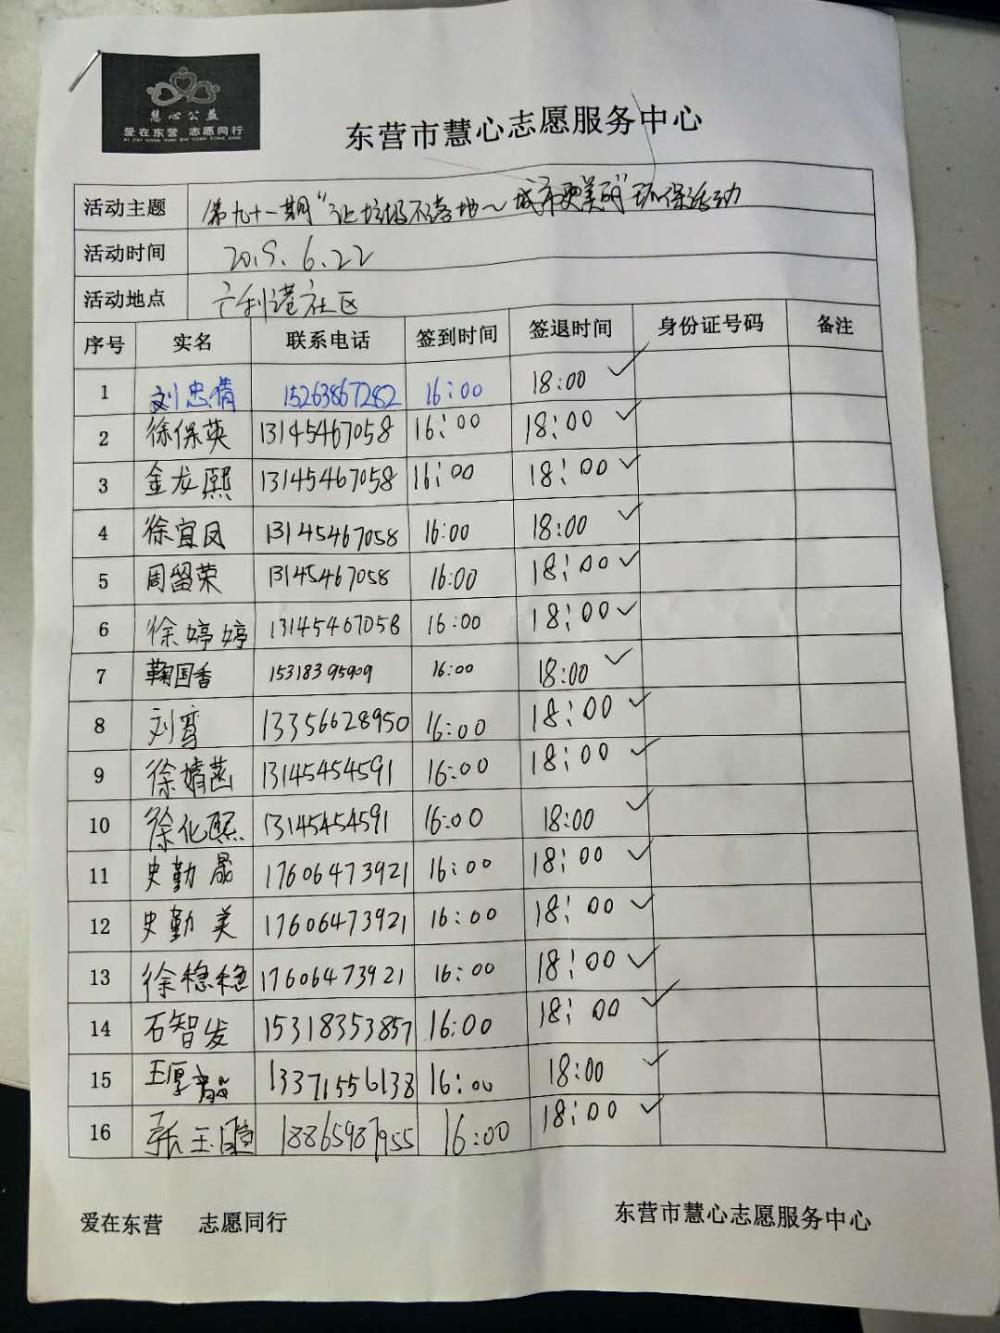 慧心公益
爱在东营 志愿同行
AI ZAI DONG YING ZHI YUAN TONG XING
东营市慧心志愿服务中心
活动主题 第九十一期“让垃圾不落地~城市更美丽”环保活动
活动时间 2019.6.22
活动地点 六利港社区
序号 实名 联系电话 签到时间 签退时间 身份证号码 备注
1 刘忠倩 15263867282 16:00 18:00 ✓
2 徐保英 13145467058 16:00 18:00 ✓
3 金龙熙 13145467058 16:00 18:00 ✓
4 徐宜凤 13145467058 16:00 18:00 ✓
5 周留荣 13145467058 16:00 18:00 ✓
6 徐婷婷 13145467058 16:00 18:00 ✓
7 鞠国香 15318395909 16:00 18:00 ✓
8 刘莺 13356628950 16:00 18:00 ✓
9 徐婧菡 13145454591 16:00 18:00 ✓
10 徐化熙 13145454591 16:00 18:00 ✓
11 史勤晟 17606473921 16:00 18:00 ✓
12 史勤美 17606473921 16:00 18:00 ✓
13 徐稳稳 17606473921 16:00 18:00 ✓
14 石智发 15318353857 16:00 18:00 ✓
15 王厚 13371556138 16:00 18:00 ✓
16 张玉暄 18865987955 16:00 18:00 ✓
爱在东营 志愿同行 东营市慧心志愿服务中心